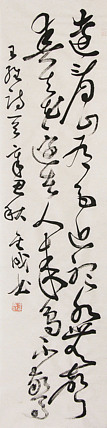 遠看山有色近聽水無聲
春去花還在人來鳥不驚
王維詩 辛丑秋 書